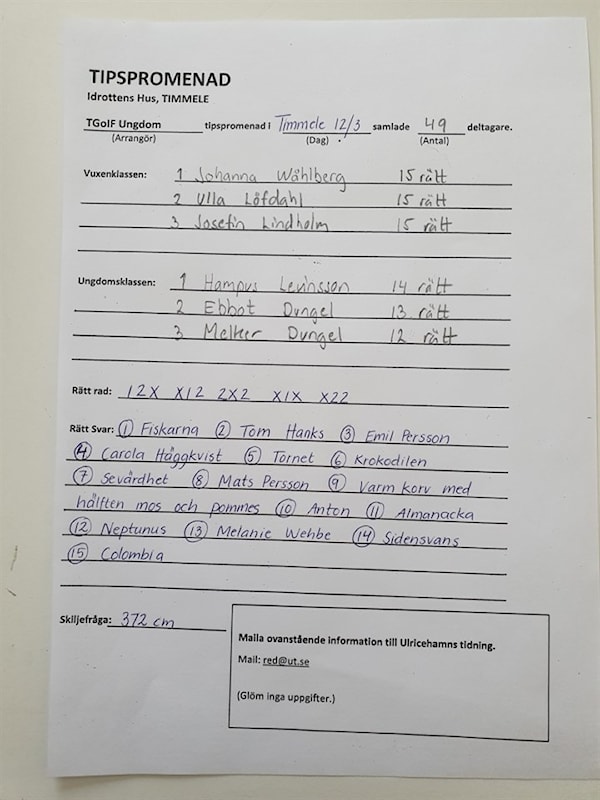 TIPSPROMENAD
Idrottens Hus, TIMMELE
TGoIF Ungdom tipspromenad i Timmele 12/3 samlade 49 deltagare.
(Arrangör) (Dag) (Antal)
Vuxenklassen: 1 Johanna Wåhlberg 15 rätt
2 Ulla Löfdahl 15 rätt
3 Josefin Lindholm 15 rätt
Ungdomsklassen: 1 Hampus Levinsson 14 rätt
2 Ebbot Dungel 13 rätt
3 Melker Dungel 12 rätt
Rätt rad: 12X X12 2X2 X1X X22
Rätt Svar: 1 Fiskarna 2 Tom Hanks 3 Emil Persson
4 Carola Häggkvist 5 Tornet 6 Krokodilen
7 Sevärdhet 8 Mats Persson 9 Varm korv med
hälften mos och pommes 10 Anton 11 Almanacka
12 Neptunus 13 Melanie Wehbe 14 Sidensvans
15 Colombia
Skiljefråga: 372 cm
Maila ovanstående information till Ulricehamns tidning.
Mail: red@ut.se
(Glöm inga uppgifter.)